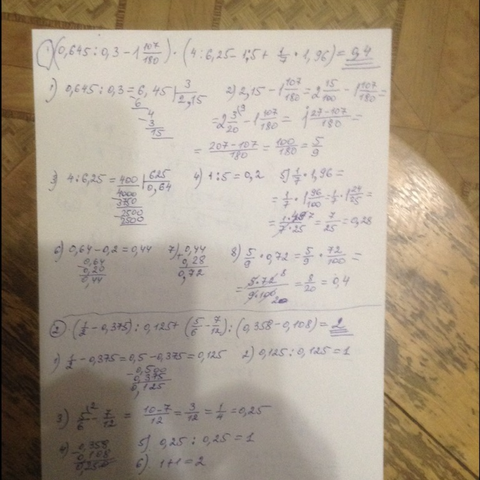 1) (0,645 : 0,3 − 1 107/180) · (4 : 6,25 − 1 : 5 + 1/7 · 1,96) = 0,4
1) 0,645 : 0,3 = 6,45 | 3
2,15
6
4
3
15
2) 2,15 − 1 107/180 = 2 15/100 − 1 107/180 =
= 2 3/20 − 1 107/180 = 1 27−107/180 =
= 207−107/180 = 100/180 = 5/9
3) 4 : 6,25 = 400 | 625
0,64
4000
3750
2500
2500
4) 1 : 5 = 0,2
5) 1/7 · 1,96 =
= 1/7 · 1 96/100 = 1/7 · 1 24/25 =
= 1·49/7·25 = 7/25 = 0,28
6) 0,64 − 0,2 = 0,44
0,64
0,20
0,44
7) 0,44
0,28
0,72
8) 5/9 · 0,72 = 5/9 · 72/100 =
= 5·72/9·100 = 8/20 = 0,4
2 (1/2 − 0,375) : 0,125 + (5/6 − 7/12) : (0,358 − 0,108) = 2
1) 1/2 − 0,375 = 0,5 − 0,375 = 0,125
0,500
0,375
0,125
2) 0,125 : 0,125 = 1
3) 5/6 − 7/12 = 10−7/12 = 3/12 = 1/4 = 0,25
4) 0,358
0,108
0,250
5) 0,25 : 0,25 = 1
6) 1+1 = 2